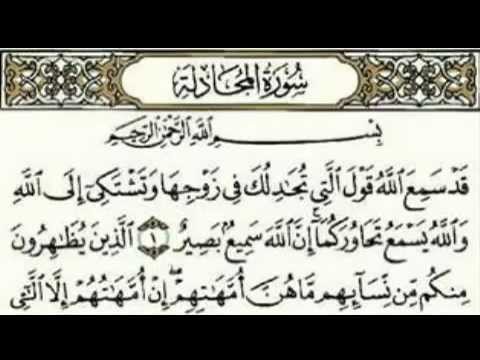 سُورَةُ المُجَادلَةِ
بِسْمِ اللَّهِ الرَّحْمَٰنِ الرَّحِيمِ
قَدْ سَمِعَ اللَّهُ قَوْلَ الَّتِي تُجَادِلُكَ فِي زَوْجِهَا وَتَشْتَكِي إِلَى اللَّهِ
وَاللَّهُ يَسْمَعُ تَحَاوُرَكُمَا إِنَّ اللَّهَ سَمِيعٌ بَصِيرٌ ١ الَّذِينَ يُظَاهِرُونَ
مِنكُم مِّن نِّسَائِهِم مَّا هُنَّ أُمَّهَاتِهِمْ إِنْ أُمَّهَاتُهُمْ إِلَّا اللَّائِي